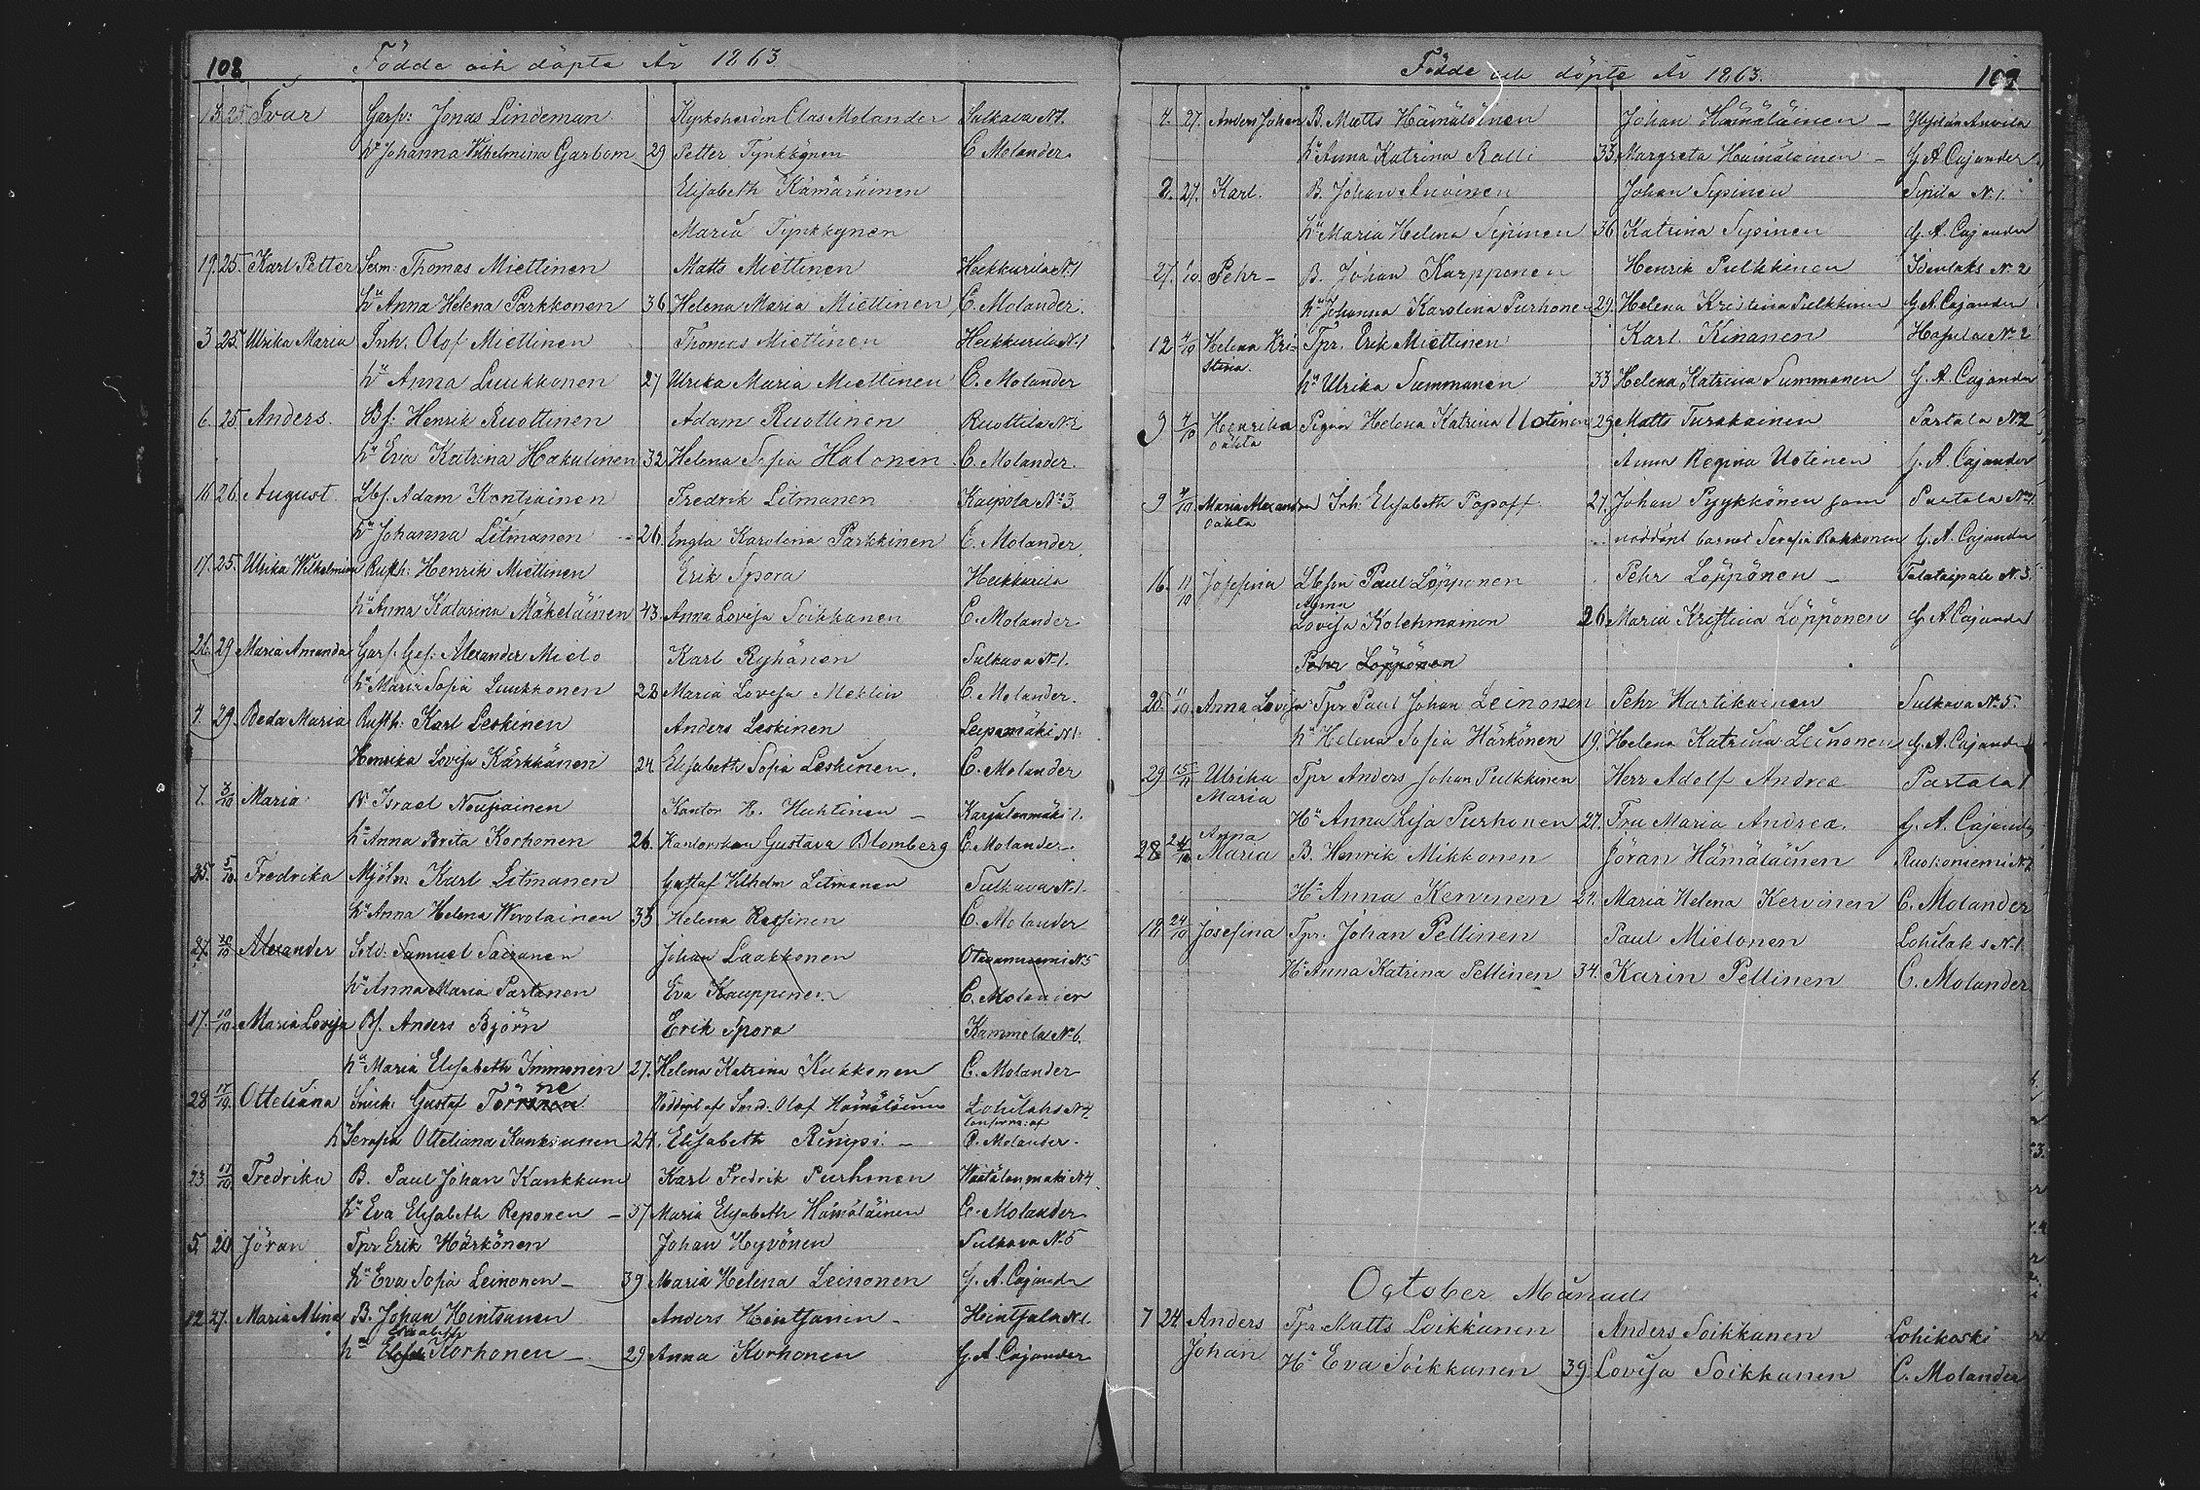 108 Födde och döpte År 1863
13 25 Ivar Garfv: Jonas Lindeman Kyrkoherden Clas Molander Sulkava N1.
hu Johanna Wilhelmina Garbom 29 Petter Tynkkynen C. Molander
Elisabeth Kämäräinen
Maria Tynkkynen
19. 25. Karl Petter Thomas Miettinen Matts Miettinen Heikkurila N1
hu Anna Helena Parkkonen 36 Helena Maria Miettinen C. Molander.
3 25. Ulrika Maria Inh. Olof Miettinen Thomas Miettinen Heikkurila N1
hu Anna Luukkonen 27 Ulrika Maria Miettinen C. Molander
6. 25. Anders. Bf: Henrik Ruottinen Adam Ruottinen Ruottila
hu Eva Katrina Hakulinen 32 Helena Sofia Halonen C. Molander.
16 26. August Lbf. Adam Kontiainen Fredrik Litmanen Kaipola No 3.
hu Johanna Litmanen 26. Engla Karolina Parkkinen C. Molander.
17. 25. Ulrika Wilhelmina Rusth: Henrik Miettinen Erik Spora Heikkurila
hu Anna Katarina Mäkeläinen 43. Anna Lovisa Soikkanen C. Molander
26. 29 Maria Amanda Garf. Ges: Alexander Mielo Karl Ryhänen Sulkava N1.
hu Maria Sofia Luukkonen 28 Maria Lovisa Meklin C. Molander.
4. 29. Beda Maria Rusth: Karl Leskinen Anders Leskinen Leipämäki N1.
Henrika Lovisa Kärkkänen 24 Elisabeth Sofia Leskinen. C. Molander
7. 3/10 Maria N. Israel Noupainen Kantor H. Huhtinen Karjulanmäki 1.
hu Anna Brita Korhonen 26. Kantorskan Gustava Blomberg C. Molander.
25. 5/10. Fredrika Mjöln: Karl Litmanen Gustaf Vilhelm Litmanen Sulkava N1.
hu Anna Helena Wirolainen 33 Helena C. Molander
27. 10/10 Alexander Sold. Samuel Saironen Johan Laakkonen Otavanniemi N5
hu Anna Maria Partanen Eva Kauppinen C. Molander
17. 10/10. Maria Lovisa Bf. Anders Björn Erik Spora Kammela N6.
hu Maria Elisabeth Immonen 27. Helena Katrina Kukkonen C. Molander
28 17/10. Otteliana Smeds. Gustaf Törrönen ne Nöddöpt af Smed. Olof Hämäläinen Lohilahs N4.
confirm: af
hu Serafia Otteliana Kanksunen 24. Elisabeth Rimpi. C. Molander.
23 17/10. Fredrika B. Paul Johan Kankkunen Karl Fredrik Purhonen Väätälänmäki N4.
hu Eva Elisabeth Reponen 37 Maria Elisabeth Hämäläinen C. Molander
5. 20 Jöran Tpr Erik Härkönen Johan Hyvönen Sulkava N5
hu Eva Sofia Leinonen 39 Maria Helena Leinonen G. A. Cajander
12 27. Maria Alina B. Johan Hintsanen Anders Heintsanen Heintsala N1.
Elisabeth
hu Korhonen 29 Anna Korhonen G. A. Cajander
Födde och döpte År 1863. 109
4. 27. Anders Johan B. Matts Hämäläinen Johan Hämäläinen
hu Anna Katrina Ralli 33. Margreta Hämäläinen G. A. Cajander
2. 27. Karl. B. Johan Auvinen Johan Sipinen Sipila N1.
hu Maria Helena Sipinen 36 Katrina Sipinen G. A. Cajander
27. Pehr B. Johan Karpponen Henrik Pulkkinen Idenlaks N. 2
hu Johanna Karolina Purhonen 29. Helena Kristina Pulkkinen G. A. Cajander
12 4/10 Helena Kri- Tpr. Erik Miettinen Karl Kinanen Hapula N. 2
stina. hu Ulrika Summanen 33 Helena Katrina Summanen G. A. Cajander
9 4/10 Henrika Pigan Helena Katrina Uotinen 29 Matts Turakainen Partala N2
oäkta Anna Regina Uotinen G. A. Cajander
9 4/10 Maria Alexandra Inh: Elisabeth Popoff 27. Johan Pyykkönen som Partala N1.
oäkta nöddöpt barnet Serafia Rakkonen G. A. Cajander
16. 11/10 Josefina Lbfm Paul Löppönen Pehr Löppönen Talataipale N3.
Anna
Lovisa Kolehmainen 26 Maria Kristina Löppönen G. A. Cajander
Pehr Löppönen
28. 11/10. Anna Lovisa Tpr Paul Johan Leinonen Pehr Hartikainen Sulkava N. 5.
hu Helena Sofia Härkönen 19. Helena Katrina Leinonen G. A. Cajander
29 15/11 Ulrika Tpr Anders Johan Pulkkinen Herr Adolf Andrea Partala 1
Maria
Hu Anna Lisa Purhonen 27. Fru Maria Andrea. G. A. Cajander
28 24/10 Anna Maria B. Henrik Mikkonen Jöran Hämäläinen Ruokoniemi N2
Hu Anna Kervinen 24. Maria Helena Kervinen C. Molander
18. 24/10 Josefina Tpr. Johan Pellinen Paul Mielonen Lohilahs N1.
Hu Anna Katrina Pellinen 34. Karin Pellinen C. Molander
October Månad
7 24 Anders Tpr Matts Loikkanen Anders Soikkanen Lohikoski
Johan Hu Eva Soikkanen 39. Lovisa Soikkanen C. Molander